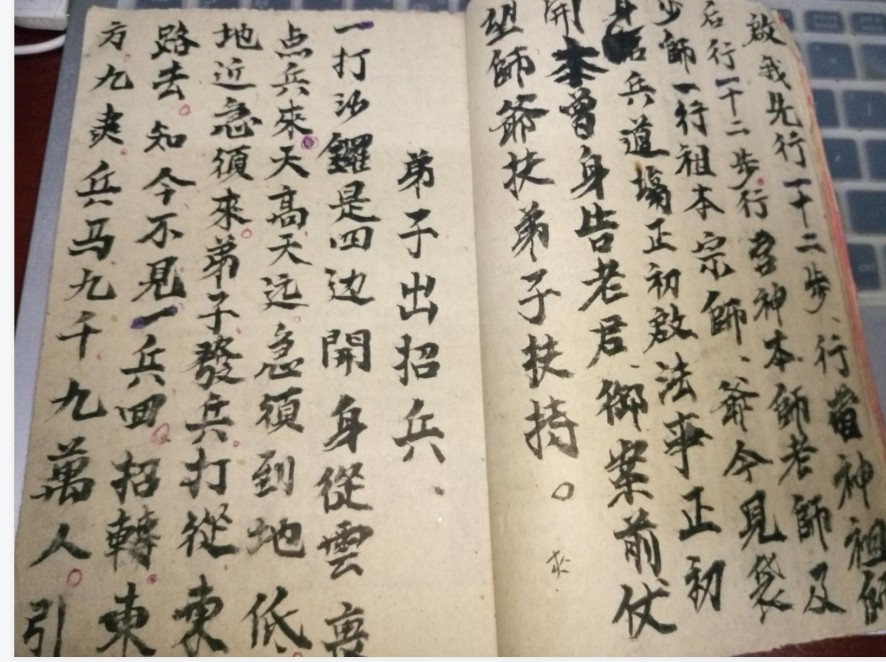 啟我先行一十二步、行當神祖師
后行一十二步行當神本師老師及
少師一行祖本宗師、爺今見袋
身招兵道場正初啟法事正初
開本曾身告老君、御案前仗
祖師爺扶弟子扶持。
弟子出招兵、
一打沙鑼是四边開身從雲裏
点兵來天高天远急須到地低
地近急須來弟子發兵打從東
路去知今不見一兵回招轉東
方九夷兵马九千九萬人引